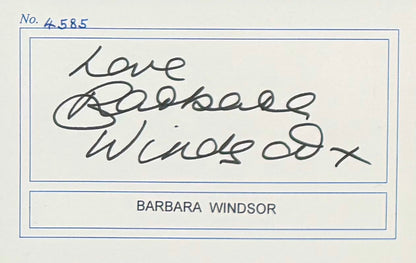 No. 4585
Love
Barbara
Windsor x
BARBARA WINDSOR